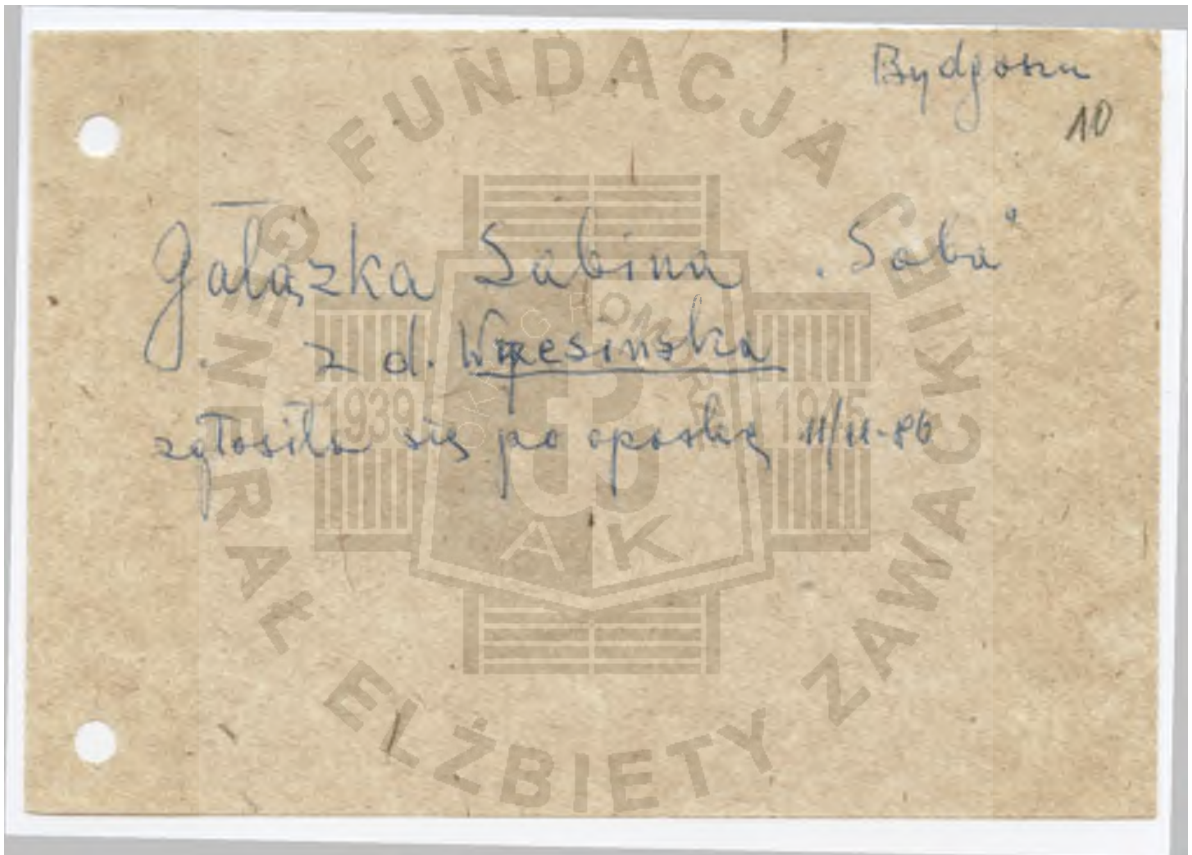 Bydgoszcz
10
Gałązka Sabina „Saba"
z d. Wrzesińska
zgłosiła się po opaskę 11/11-86
FUNDACJA GENERAŁ ELŻBIETY ZAWACKIEJ
OKRĘG POMORZE
1939 1945
AK